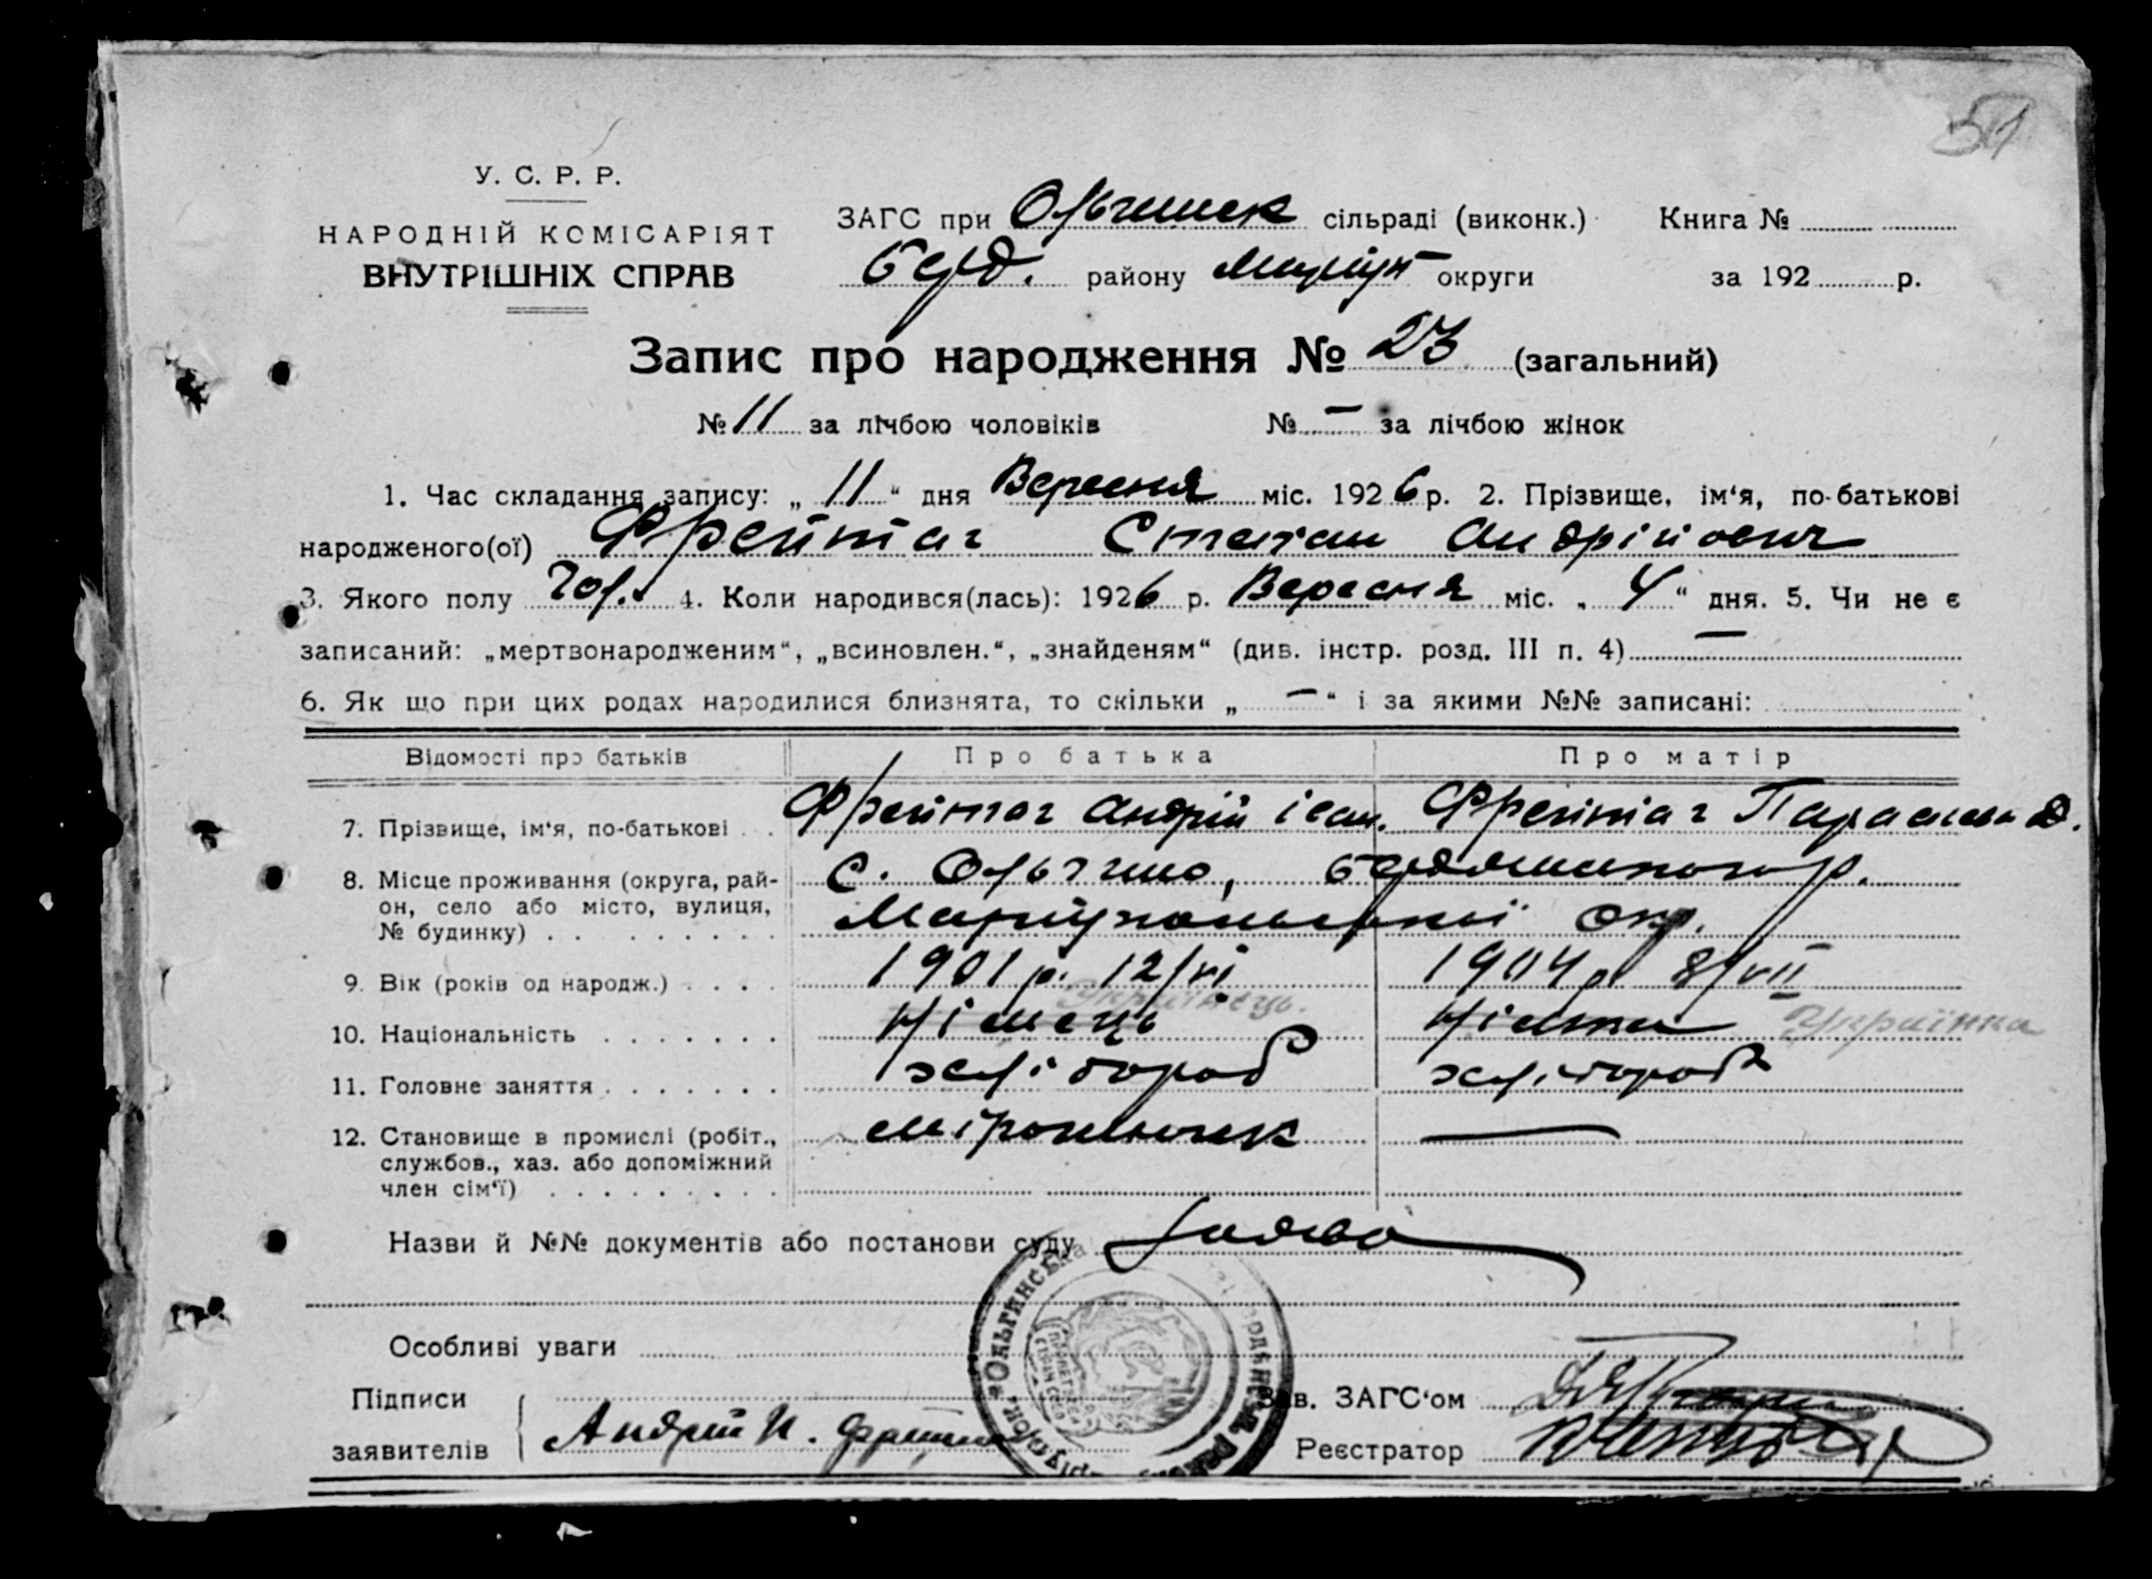 51
У. С. Р. Р.
НАРОДНІЙ КОМІСАРІЯТ
ВНУТРІШНІХ СПРАВ
ЗАГС при Ольгинск сільраді (виконк.) Книга №
Берд. району Маріуп округи за 192 р.
Запис про народження № 23 (загальний)
№ 11 за лічбою чоловіків № — за лічбою жінок
1. Час складання запису: „ 11 “ дня Вересня міс. 1926 р. 2. Прізвище, ім‘я, по-батькові
народженого(ої) Фрейтаг Степан Андрійович
3. Якого полу чол. 4. Коли народився(лась): 1926 р. Вересня міс. „ 4 “ дня. 5. Чи не є
записаний: „мертвонародженим“, „всиновлен.“, „знайденям“ (див. інстр. розд. III п. 4) —
6. Як що при цих родах народилися близнята, то скільки „ — “ і за якими №№ записані:
Відомості про батьків Про батька Про матір
7. Прізвище, ім‘я, по-батькові Фрейтаг Андрій Іван. Фрейтаг Параска Д.
8. Місце проживання (округа, рай-
он, село або місто, вулиця,
№ будинку)
с. Ольгино,
Маріупольської окр.
9. Вік (років од народж.) 1901 р. 12/VI 1904 р 8/VII
10. Національність Німець Українець. Німка Українка
11. Головне заняття хлібороб хлібороб
12. Становище в промислі (робіт.,
службов., хаз. або допоміжний
член сім‘ї)
—
Назви й №№ документів або постанови суду Заява
Особливі уваги
Підписи
заявителів
Андрій И.
Зав. ЗАГС‘ом
Реєстратор